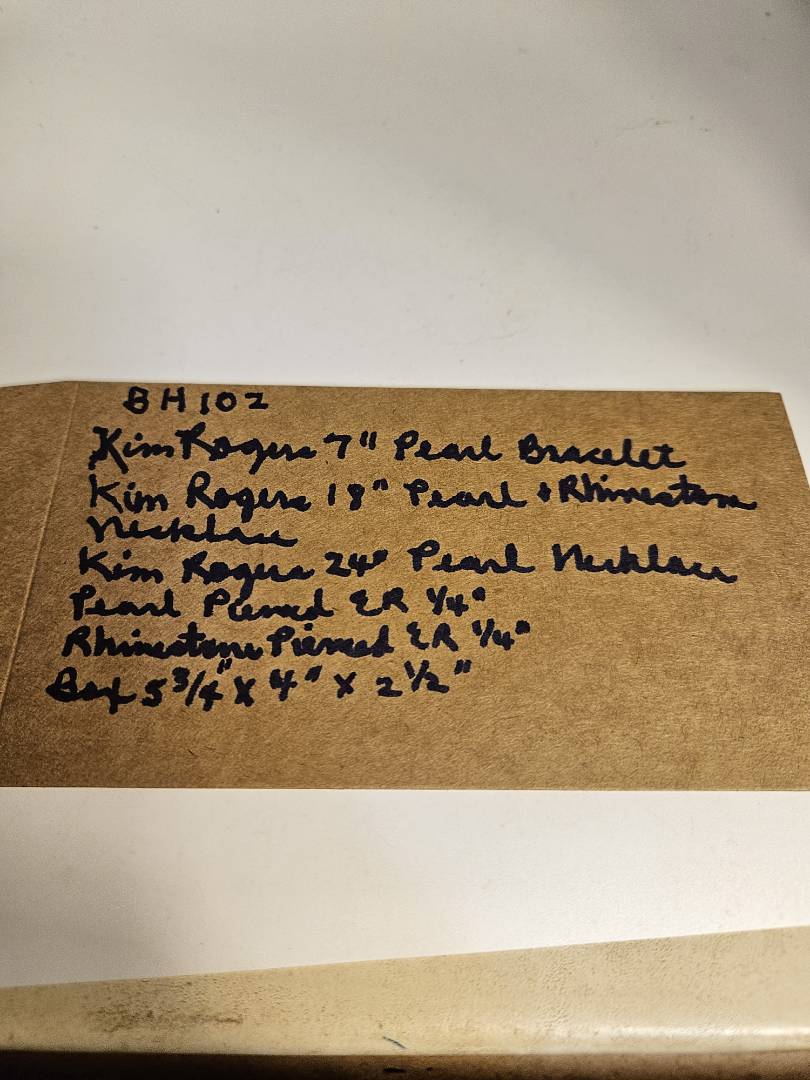 BH102
Kim Rogers 7" Pearl Bracelet
Kim Rogers 18" Pearl & Rhinestone
Necklace
Kim Rogers 24" Pearl Necklace
Pearl Pierced ER 1/4"
Rhinestone Pierced ER 1/4"
Box 5 3/4" X 4" X 2 1/2"